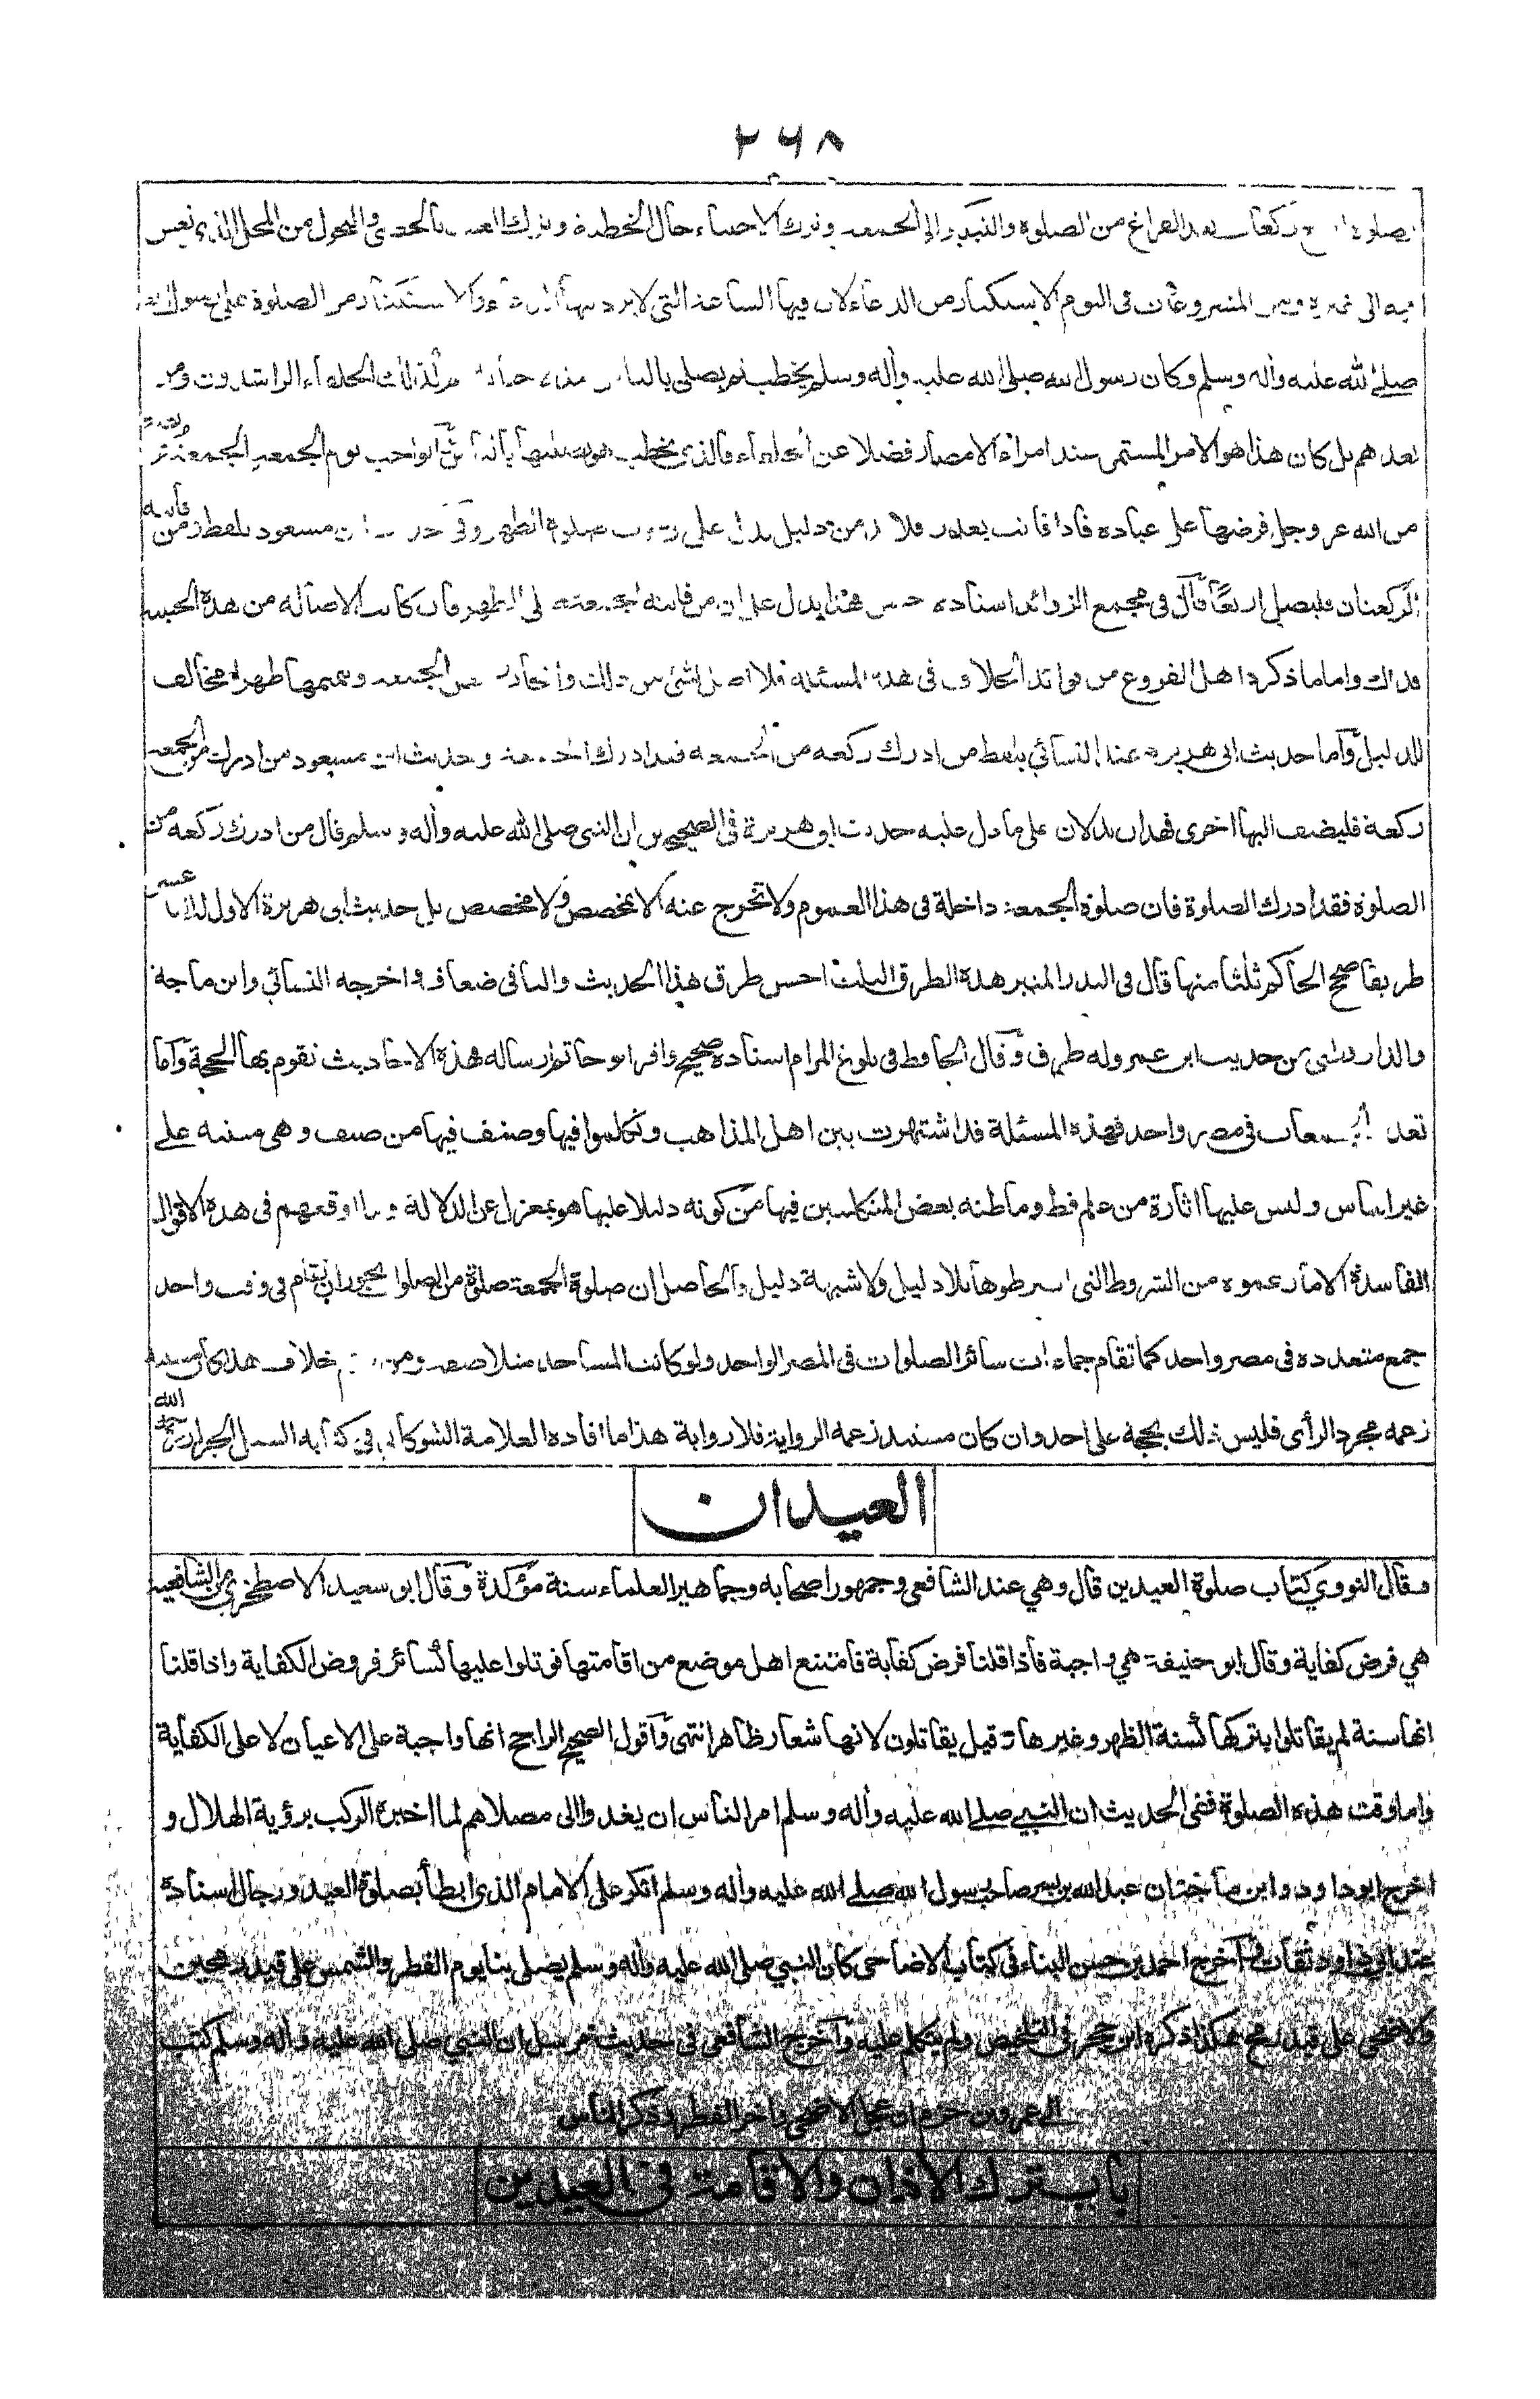 ٢٦٨
بصلوة ركعات بعد الفراغ من الصلوة والتبكير الى الجمعة وترك الاحتباء حال الخطبة والتحول من المحل الذى نعس
فيه الى غيره ومن المشروعات فى اليوم الاستكثار من الدعاء لان فيها الساعة التى لا يرد فيها والاستكثار من الصلوة على رسول الله
صلے الله عليه وأله وسلم وكان رسول الله صلى الله عليه وأله وسلم يخطب ثم يصلى بالناس الراشدون ومن
بعدهم بل كان هذا هو الامر المستمر عند امراء الامصار فضلا عن فالذى يخطب هو الواجب يوم الجمعة الجمعة
من الله عز وجل فرضها على عباده فاذا فاتت بعذر فلا بد من دليل يدل على وجوب صلوة الظهر وفى ابن مسعود بلفظ ومن فاتته
الركعتان فليصل اربعًا قال فى مجمع الزوائد اسناده حسن فهذا يدل على ان من فاتته الجمعة صلى الظهر فان كانت الاصالة من هذه الحيثية
فذاك واما ما ذكره اهل الفروع من فوائد الخلاف فى هذه المسئلة فلا اصل لشئ من ذلك الجمعة وتتميمها ظهرا مخالف
للدليل وأما حديث ابى هريرة عند النسائي بلفظ من ادرك ركعة من الجمعة فقد ادرك الجمعة وحديث ابن مسعود من ادرك من الجمعة
ركعة فليضف اليها اخرى فهذان يدلان على ما دل عليه حديث ابى هريرة فى الصحيحين ان النبى صلى الله عليه وأله وسلم قال من ادرك ركعة من
الصلوة فقد ادرك الصلوة فان صلوة الجمعة داخلة فى هذا العموم ولا تخرج عنه الا بمخصص ولا مخصص بل حديث ابى هريرة الاول له عشر
طريقا صحح الحاكم ثلثا منها قال فى البدر المنير هذه الطرق الثلث احسن طرق هذا الحديث والباقى ضعاف واخرجه النسائي وابن ماجة
والدارقطنى من حديث ابن عمر وله طرق وقال الحافظ فى بلوغ المرام اسناده صحيح ابو حاتم ارساله فهذه الاحاديث تقوم بها الحجة وأما
تعدد الجمعات فى مصر واحد فهذه المسئلة قد اشتهرت بين اهل المذاهب وتكلموا فيها وصنف فيها من صنف وهى مبنية على
غير اساس وليس عليها اثارة من علم قط وما ظنه بعض المتكلمين فيها من كونه دليلا عليها هو بمعزل عن الدلالة وما اوقعهم فى هذه الاقوال
الفاسدة الا ما زعموه من الشروط التى اشترطوها بلا دليل ولا شبهة دليل والحاصل ان صلوة الجمعة صلوة من الصلوات يجوز ان تقام فى وقت واحد
جمع متعددة فى مصر واحد كما تقام جماعات سائر الصلوات فى المصر الواحد ولو كانت المساجد متلاصقة ومن خلاف هذا كان مستند
زعمه مجرد الرأى فليس ذلك بحجة على احد وان كان مستند زعمه الرواية فلا رواية هذا ما افاده العلامة الشوكانى فى كتابه السيل الجرار رحمه الله
العيدان
وقال النووي كتاب صلوة العيدين قال وهي عند الشافعى وجمهور اصحابه وجماهير العلماء سنة مؤكدة وقال ابو سعيد الاصطخرى من الشافعية
هي فرض كفاية وقال ابو حنيفة هي واجبة فاذا قلنا فرض كفاية فامتنع اهل موضع من اقامتها قوتلوا عليها كسائر فروض الكفاية واذا قلنا
انها سنة لم يقاتلوا بتركها كسنة الظهر وغيرها وقيل يقاتلون لانها شعار ظاهر انتهى وأقول الصحيح الراجح انها واجبة على الاعيان لا على الكفاية
واما وقت هذه الصلوة ففى الحديث ان النبي صلے الله عليه وأله وسلم امر الناس ان يغدوا الى مصلاهم لما اخبره الركب برؤية الهلال و
اخرج ابو داود وابن ماجة ان عبد الله بن بسر صاحب رسول الله صلے الله عليه وأله وسلم انكر على الامام الذى ابطأ بصلوة العيد ورجال اسناده
عند ابى داود ثقات وأخرج احمد بن حسن البناء فى كتاب الاضاحى كان النبي صلى الله عليه وأله وسلم يصلى بنا يوم الفطر والشمس على قيد رمحين
والاضحى على قيد رمح هكذا ذكره ابن حجر فى التلخيص ولم يتكلم عليه وأخرج الشافعى فى حديث مرسل ان النبي صلى الله عليه وأله وسلم كتب
الى عمرو بن حزم ان عجل الاضحى واخر الفطر وذكر الناس
باب ترك الأذان والاقامة فى العيدين